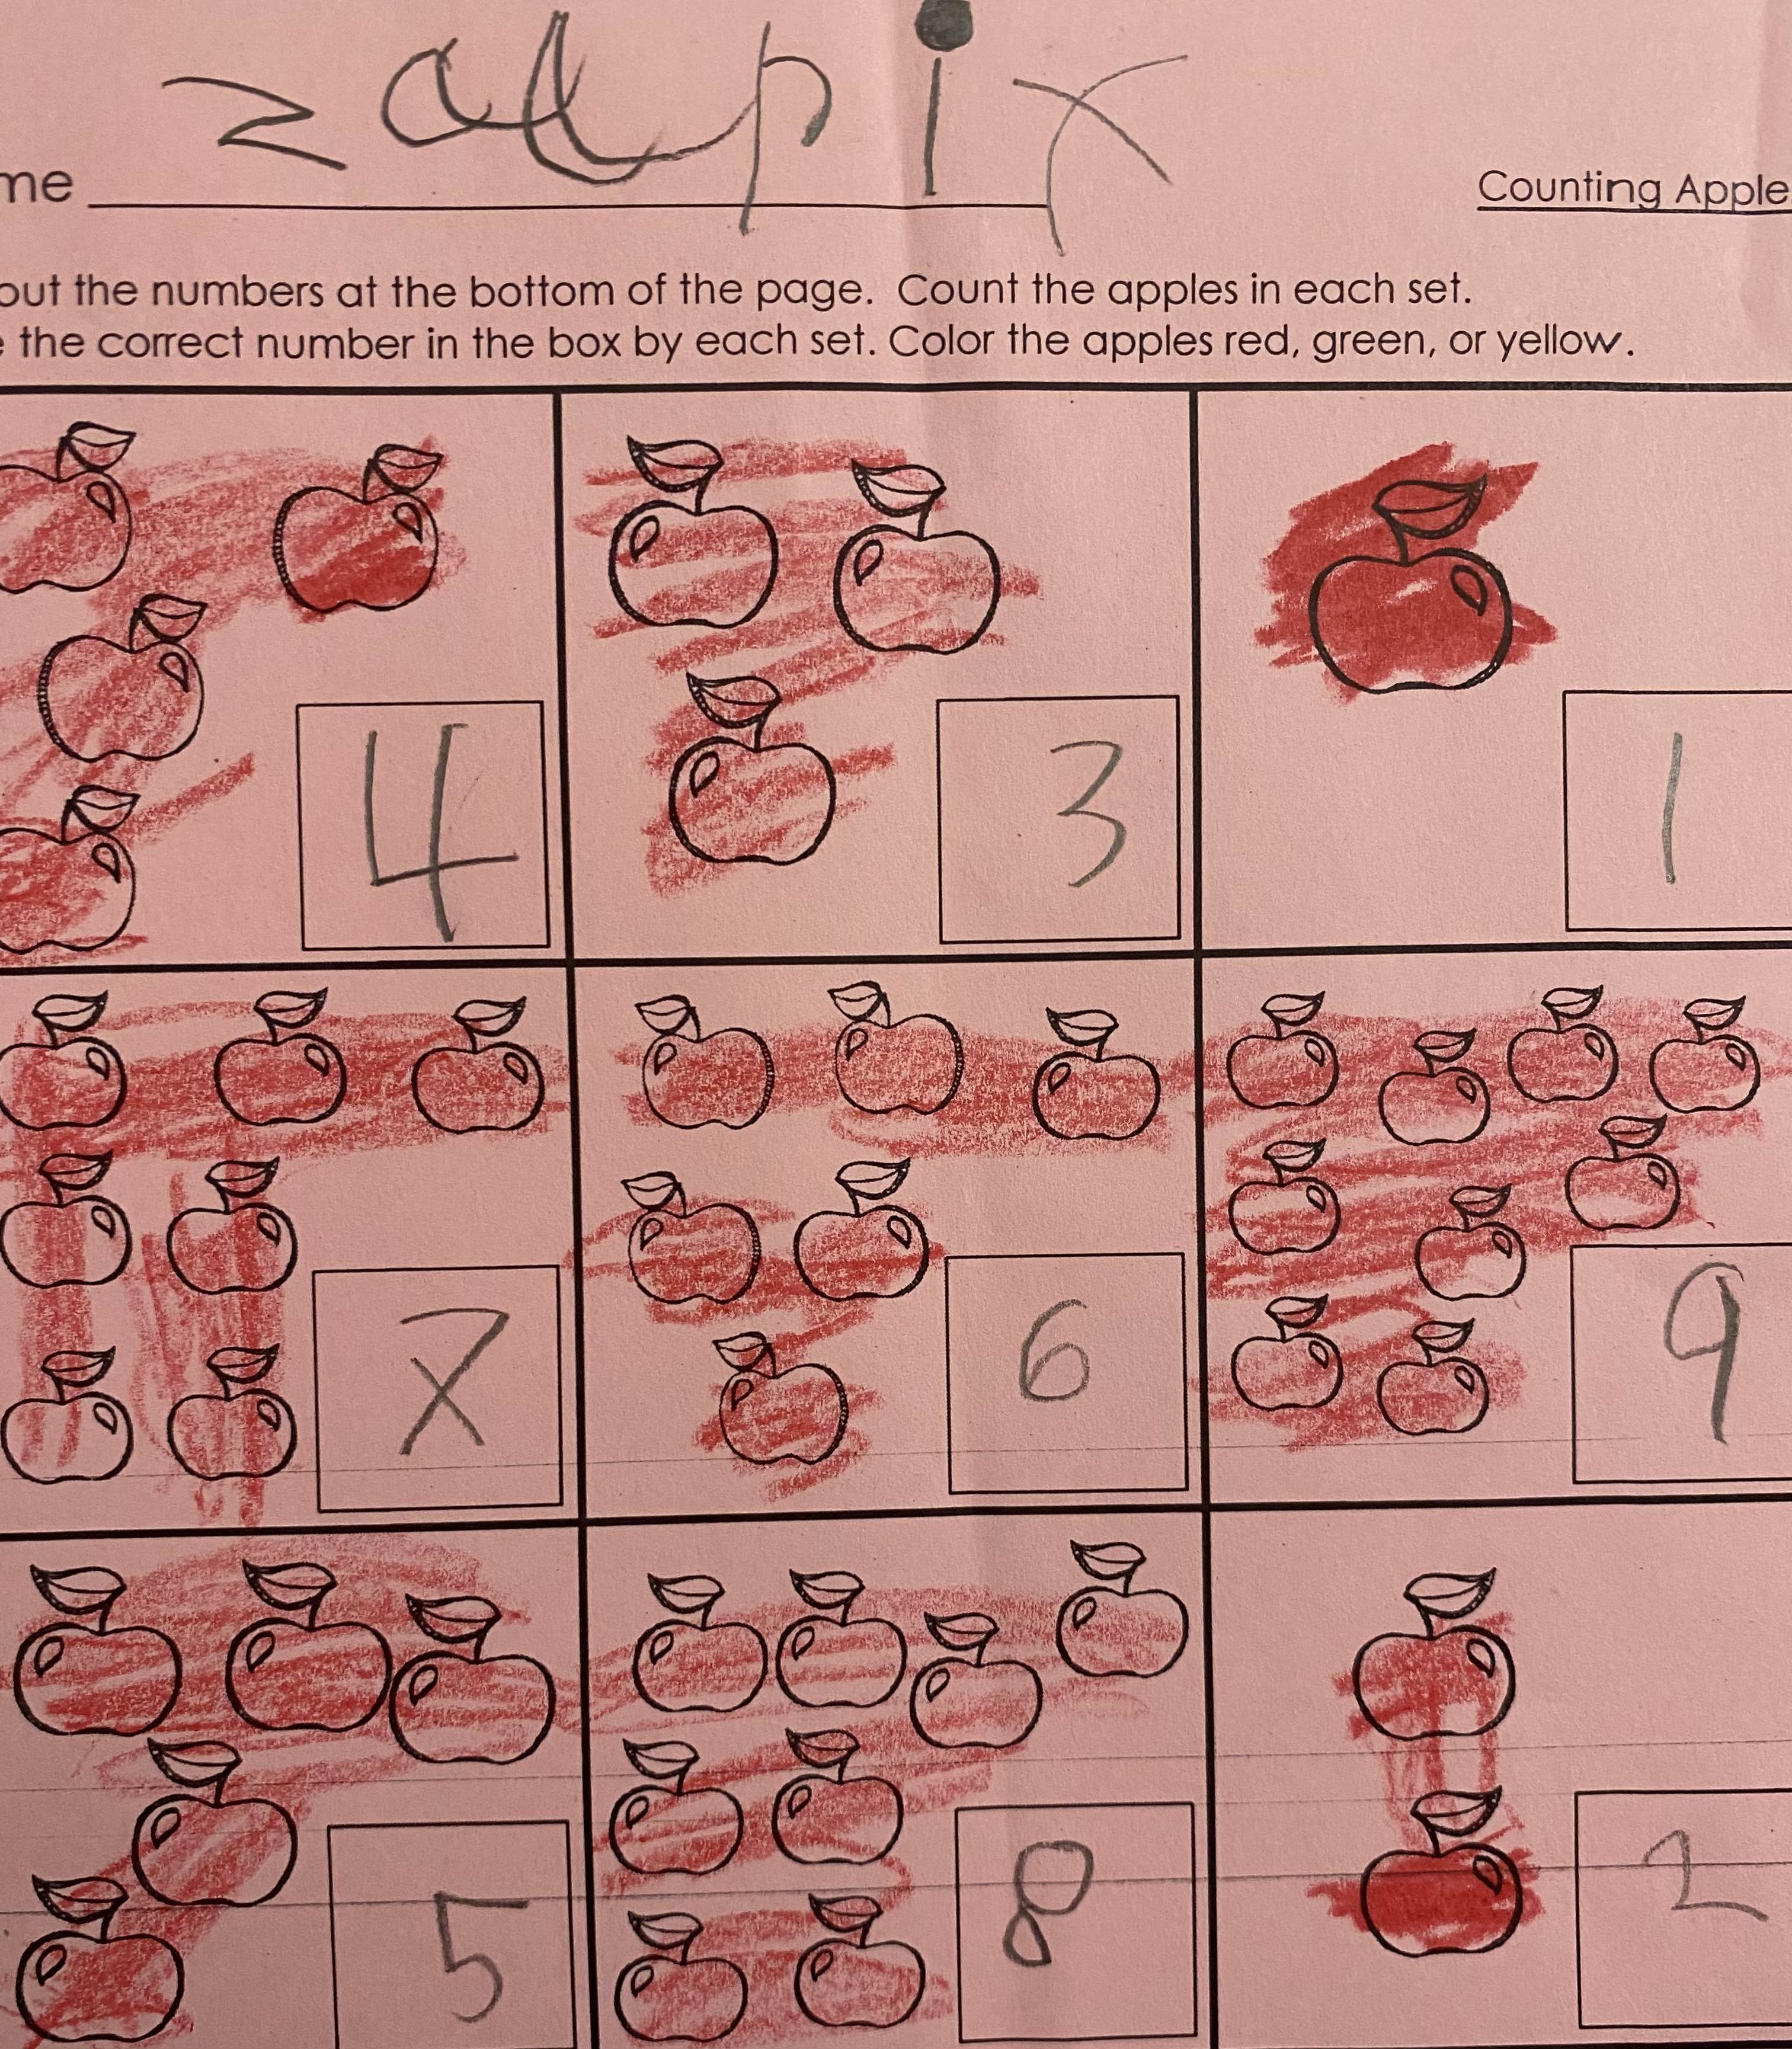 zadpix
me
Counting Apple
out the numbers at the bottom of the page. Count the apples in each set.
the correct number in the box by each set. Color the apples red, green, or yellow.
4 3 1
7 6 9
5 8 2